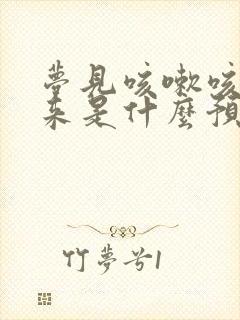 夢見咳嗽咳
來是什麼預
竹夢兮1